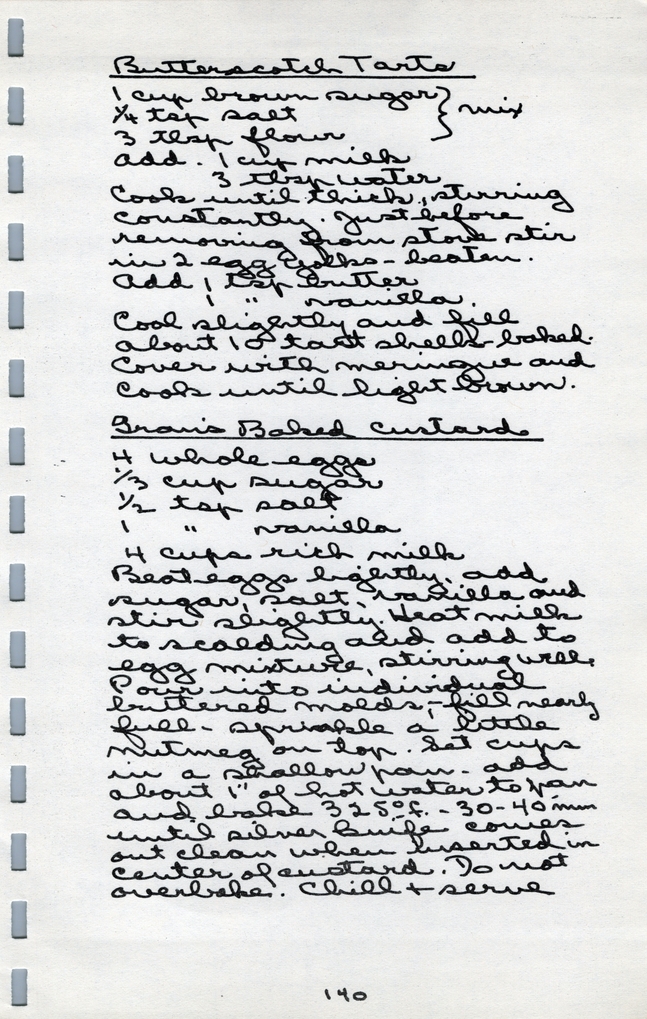 Butterscotch Tarts
1 cup brown sugar } mix
1/4 tsp salt
3 tbsp flour
add. 1 cup milk
3 tbsp water
Cook until thick, stirring
constantly. Just before
removing from stove stir
in 2 egg yolks - beaten.
Add 1 tsp butter
1 " vanilla.
Cool slightly and fill
about 10 tart shells - baked.
Cover with meringue and
cook until light brown.
Gran's Baked Custard
4 whole eggs
1/3 cup sugar
1/2 tsp salt
1 " vanilla
4 cups rich milk
Beat eggs lightly, add
sugar, salt, vanilla and
stir slightly. Heat milk
to scalding and add to
egg mixture, stirring well.
Pour into individual
buttered molds, - fill nearly
full - sprinkle a little
nutmeg on top. Set cups
in a shallow pan - add
about 1" of hot water to pan
and bake 325°f. - 30-40 min
until silver knife comes
out clean when inserted in
center of custard. Do not
overbake. Chill + serve
140